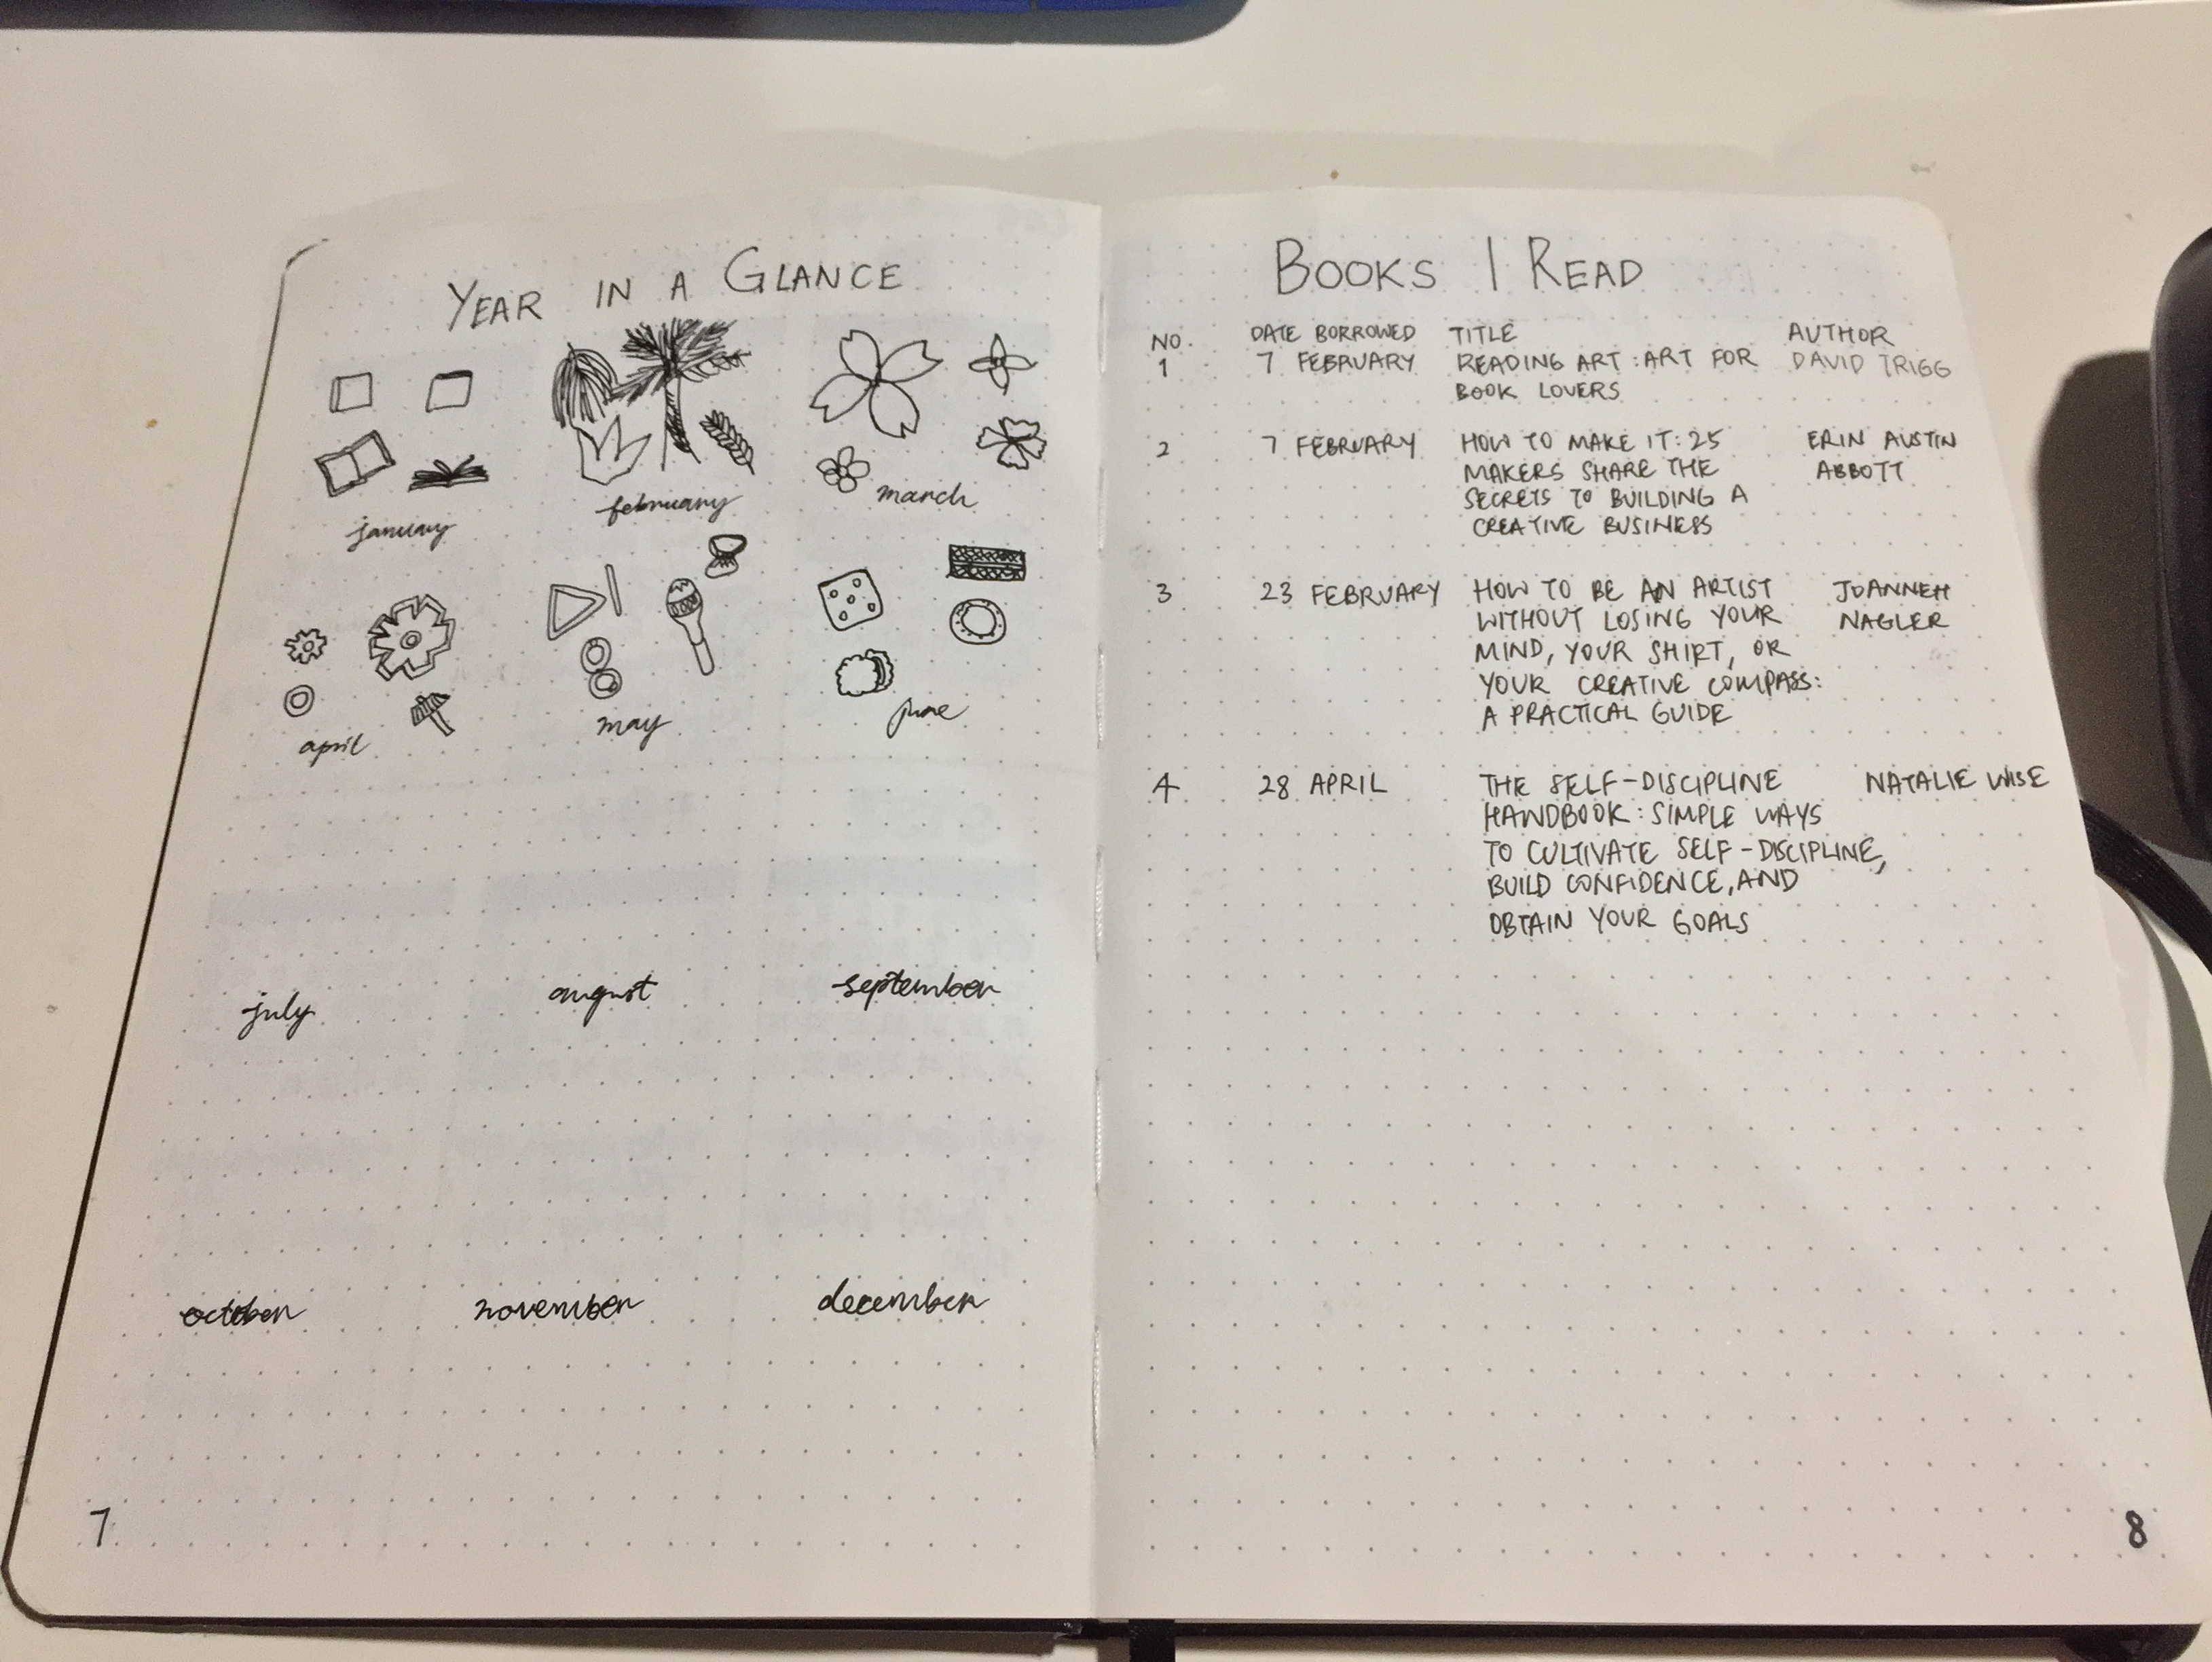 YEAR IN A GLANCE
january
february
march
april
may
june
july
august
september
october
november
december
7
BOOKS I READ
NO. DATE BORROWED TITLE AUTHOR
1 7 FEBRUARY READING ART : ART FOR DAVID TRIGG
BOOK LOVERS
2 7 FEBRUARY HOW TO MAKE IT: 25 ERIN AUSTIN
MAKERS SHARE THE ABBOTT
SECRETS TO BUILDING A
CREATIVE BUSINESS
3 23 FEBRUARY HOW TO BE AN ARTIST JOANNEH
WITHOUT LOSING YOUR NAGLER
MIND, YOUR SHIRT, OR
YOUR CREATIVE COMPASS:
A PRACTICAL GUIDE
4 28 APRIL THE SELF-DISCIPLINE NATALIE WISE
HANDBOOK: SIMPLE WAYS
TO CULTIVATE SELF-DISCIPLINE,
BUILD CONFIDENCE, AND
OBTAIN YOUR GOALS
8